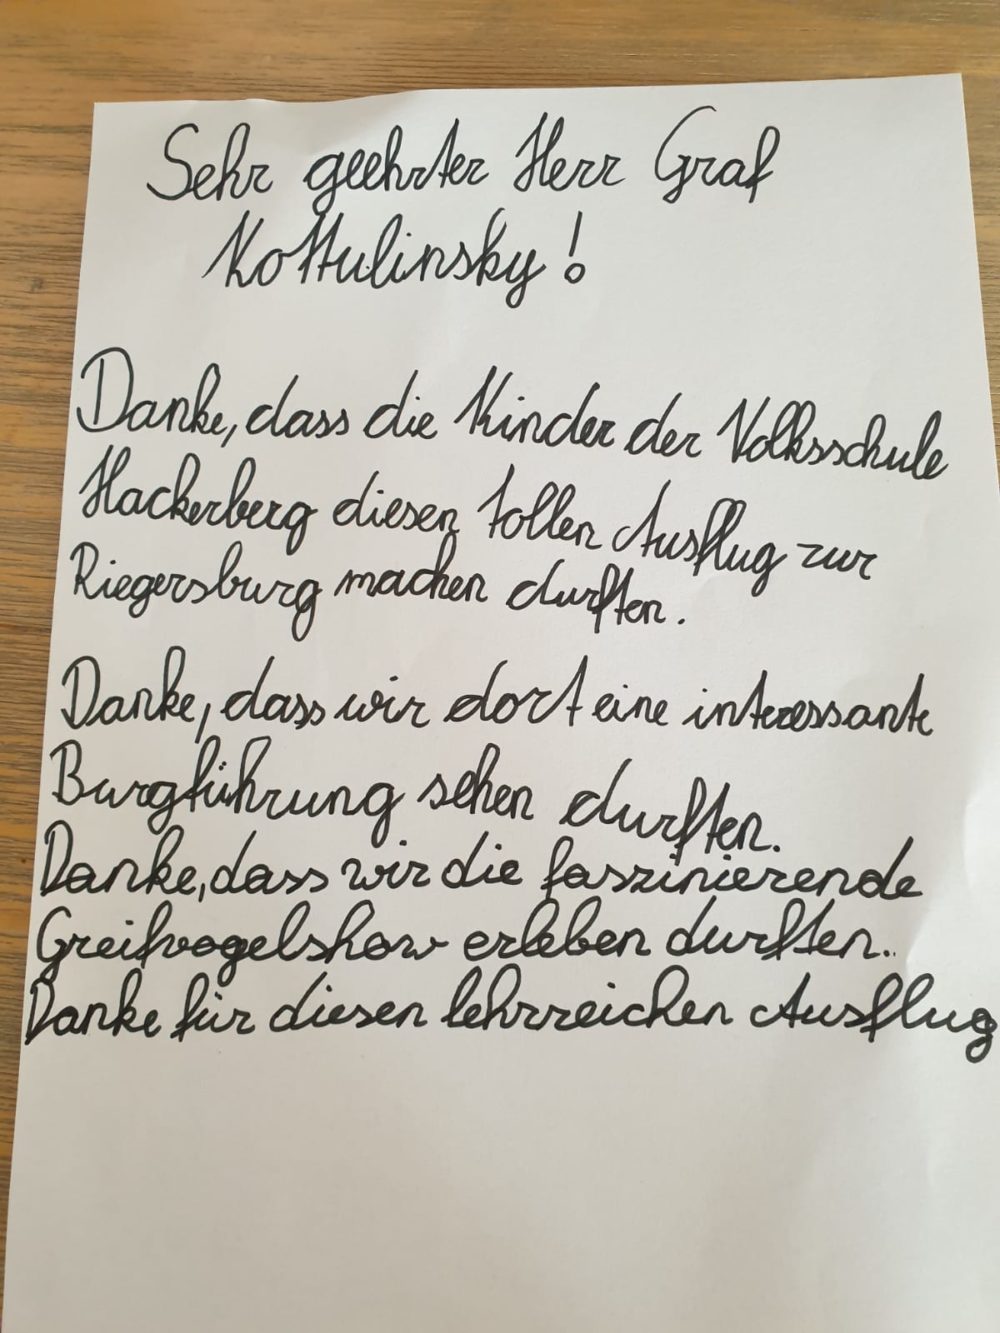 Sehr geehrter Herr Graf
Kottulinsky!
Danke, dass die Kinder der Volksschule
Hackerberg diesen tollen Ausflug zur
Riegersburg machen durften.
Danke, dass wir dort eine interessante
Burgführung sehen durften.
Danke, dass wir die faszinierende
Greifvogelshow erleben durften..
Danke für diesen lehrreichen Ausflug